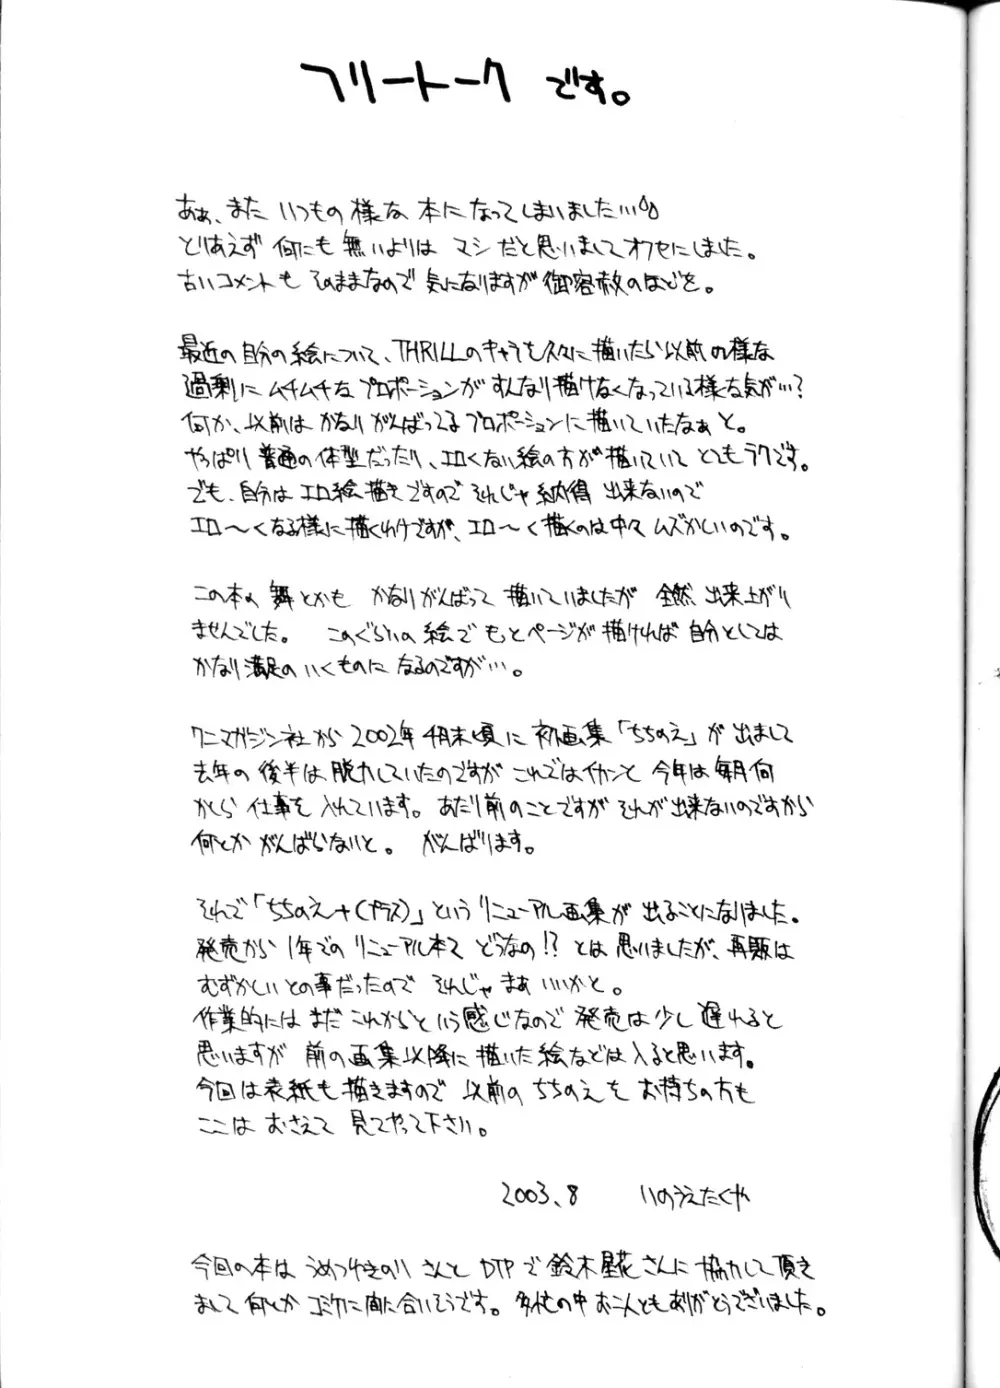 フリートークです。
あぁ、また いつもの様な 本に なってしまいました…
とりあえず 何にも 無いよりは マシだと思いましてオフセにしました。
古いコメントも そのままなので 気になりますが御容赦のほどを。
最近の自分の絵について、THRILLのキャラを久々に描いたら以前の様な
過剰に ムチムチな プロポーションが すんなり描けなくなっている様な気が…?
何か、以前は かなりがんばってるプロポーションに描いていたなぁと。
やっぱり 普通の体型だったり、エロくない絵の方が描いていて とてもラクです。
でも、自分は エロ絵描きですので それじゃ納得 出来ないので
エロ〜くなる様に描くわけですが、エロ〜く描くのは中々 ムズかしいのです。
この本の 舞とかも かなりがんばって 描いていましたが 全然 出来上がり
ませんでした。 このぐらいの 絵で もっとページが 描ければ 自分としては
かなり満足の いくものに なるのですが…。
ワニマガジン社から 2002年 4月末頃に 初画集「ちちのえ」が 出まして
去年の 後半は 脱力していたのですが これではイカンと 今年は 毎月何
かしら 仕事を 入れています。 あたり前のことですが それが出来ないのですから
何とか がんばらないと。 がんばります。
それで「ちちのえ+(プラス)」という リニューアル画集が 出ることになりました。
発売から 1年での リニューアル本て どうなの!? とは 思いましたが、再販は
むずかしい との事だったので それじゃ まぁ いいかと。
作業的には まだ これからと いう感じなので 発売は 少し 遅れると
思いますが 前の画集以降に 描いた絵などは 入ると思います。
今回は表紙も 描きますので 以前の ちちのえを お持ちの方も
ここは おさえて 見てやって下さい。
2003.8 いのうえたくや
今回の本は うめつゆきのり さんと DTPで 鈴木星花さんに 協力して 頂き
まして 何とか コミケに間に合いそうです。 多忙の中 お二人とも ありがとうございました。